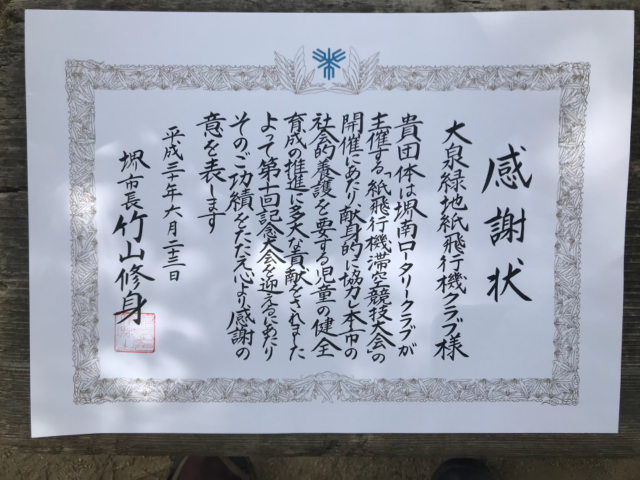 感謝状
大泉緑地紙飛行機クラブ様
貴団体は堺南ロータリークラブが
主催する「紙飛行機滞空競技大会」の
開催にあたり、献身的に協力し本市の
社会的養護を要する児童の健全
育成の推進に多大な貢献をされました
よって第十回記念大会を迎えるにあたり
そのご功績をたたえ心より感謝の
意を表します
平成三十年六月二十三日
堺市長 竹山修身